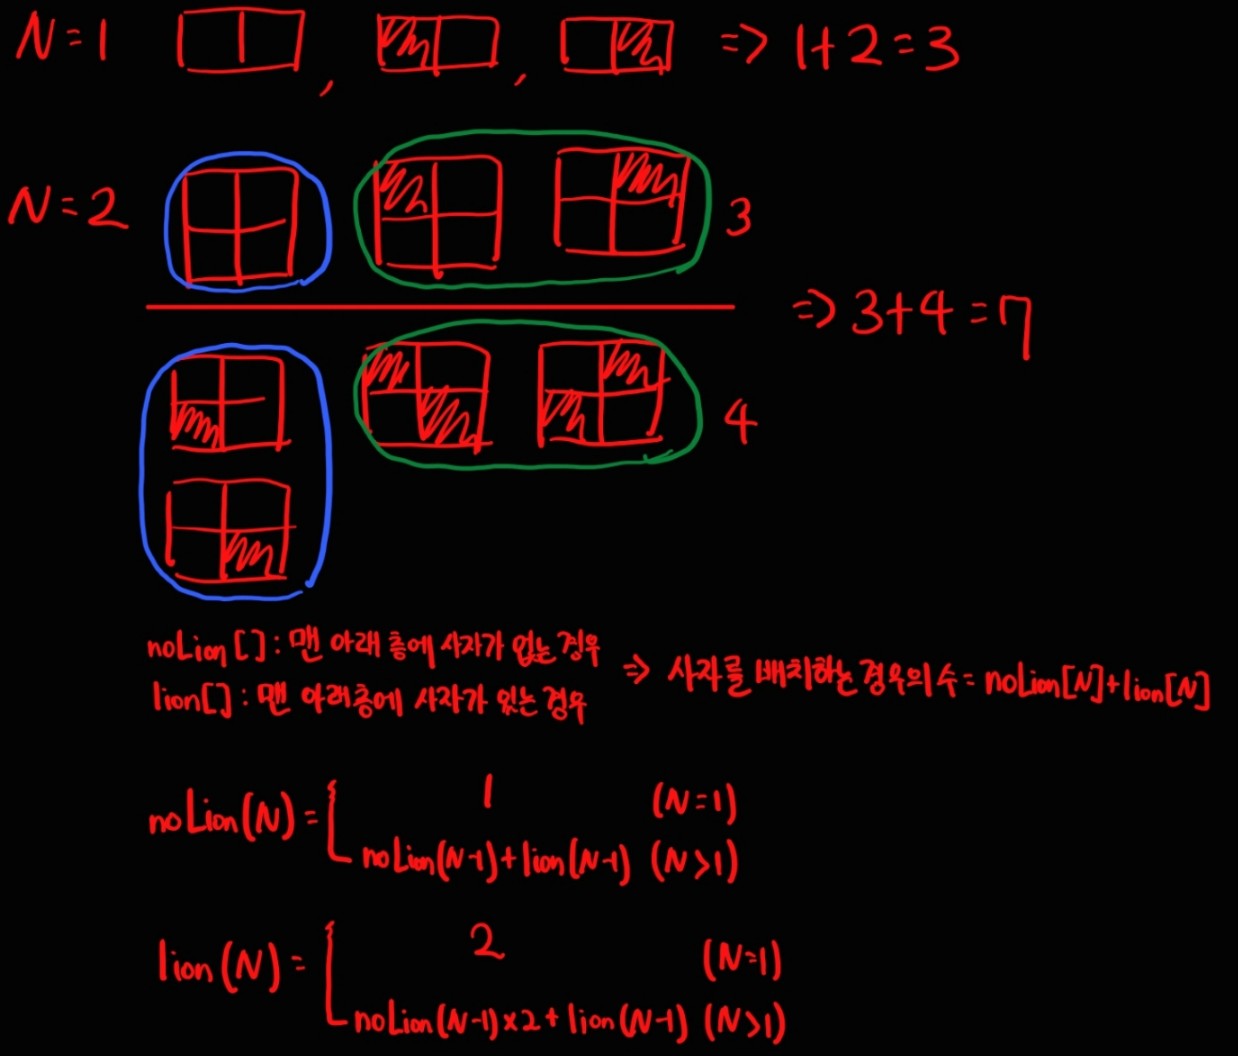 N=1 , , => 1+2=3
N=2 3
=> 3+4=7
4
noLion[]: 맨 아래 층에 사자가 없는 경우
lion[]: 맨 아래층에 사자가 있는 경우
=> 사자를 배치하는 경우의 수 = noLion[N]+lion[N]
noLion(N)= 1 (N=1)
noLion(N-1)+lion(N-1) (N>1)
lion(N)= 2 (N=1)
noLion(N-1)×2+lion(N-1) (N>1)